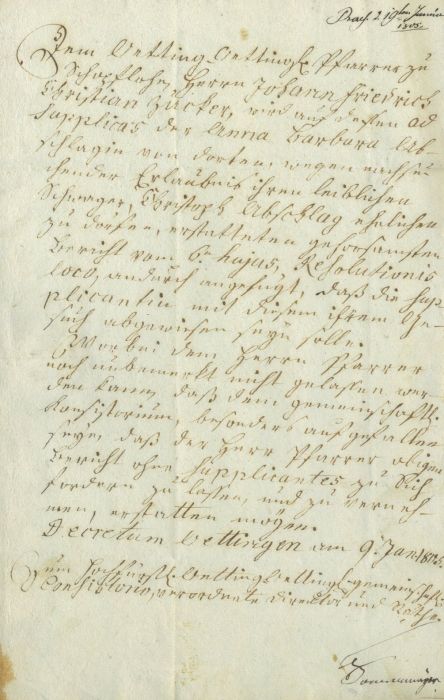 Praes. 21ten Januar
1805.
Dem Oetting-Oetting. Pfarrer zu
Schopflohe, Herrn Johann Friedrich
Christian Zucker, wird auf dessen ad
Supplicas der Anna Barbara Ab-
schlagin von dorten, wegen nachzu-
chender Erlaubnis ihren leiblichen
Schwager, Christoph Abschlag ehelichen
zu dörfen, erstatteten gehorsamsten
Bericht vom 6n hujus, Resolutionis
loco, andurch angefügt, daß die Sup-
plicantin mit diesem ihrem Ge-
such abgewiesen seyn solle.
Wobei dem Herrn Pfarrer
noch unbemerkt nicht gelassen wer-
den kann, daß dem gemeinschaftl.
Konsistorium, besonders aufgefallen
seye, daß der Herr Pfarrer obigen
Bericht ohne Supplicantes zu sich
fordern zu lassen, und zu verneh-
men, erstatten mögen.
Decretum Oettingen am 9n Jan. 1805.
Zum Hochfürstl. Oetting Oetting gemeinschaftl.
Consistorio, verordnete Director und Räthe.